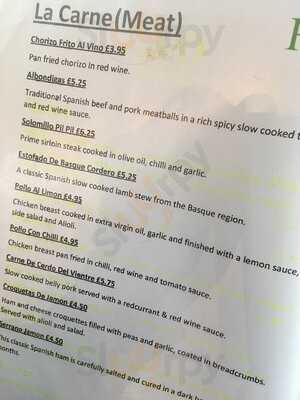 La Carne(Meat)
Chorizo Frito Al Vino £3.95
Pan fried chorizo In red wine.
Albondigas £5.25
Traditional Spanish beef and pork meatballs in a rich spicy slow cooked t
and red wine sauce.
Solomillo Pil Pil £6.25
Prime sirloin steak cooked in olive oil, chilli and garlic.
Estofado De Basque Cordero £5.25
A classic Spanish slow cooked lamb stew from the Basque region.
Pollo Al Limon £4.95
Chicken breast cooked in extra virgin oil, garlic and finished with a lemon sauce,
side salad and Alioli.
Pollo Con Chilli £4.95
Chicken breast pan fried in chilli, red wine and tomato sauce.
Carne De Cerdo Del Vientre £5.75
Slow cooked belly pork served with a redcurrant & red wine sauce.
Croquetas De Jamon £4.50
Ham and cheese croquettes filled with peas and garlic, coated in breadcrumbs.
Served with alioli and salad.
Serrano Jamon £4.50
This classic Spanish ham is carefully salted and cured in a dark
months.